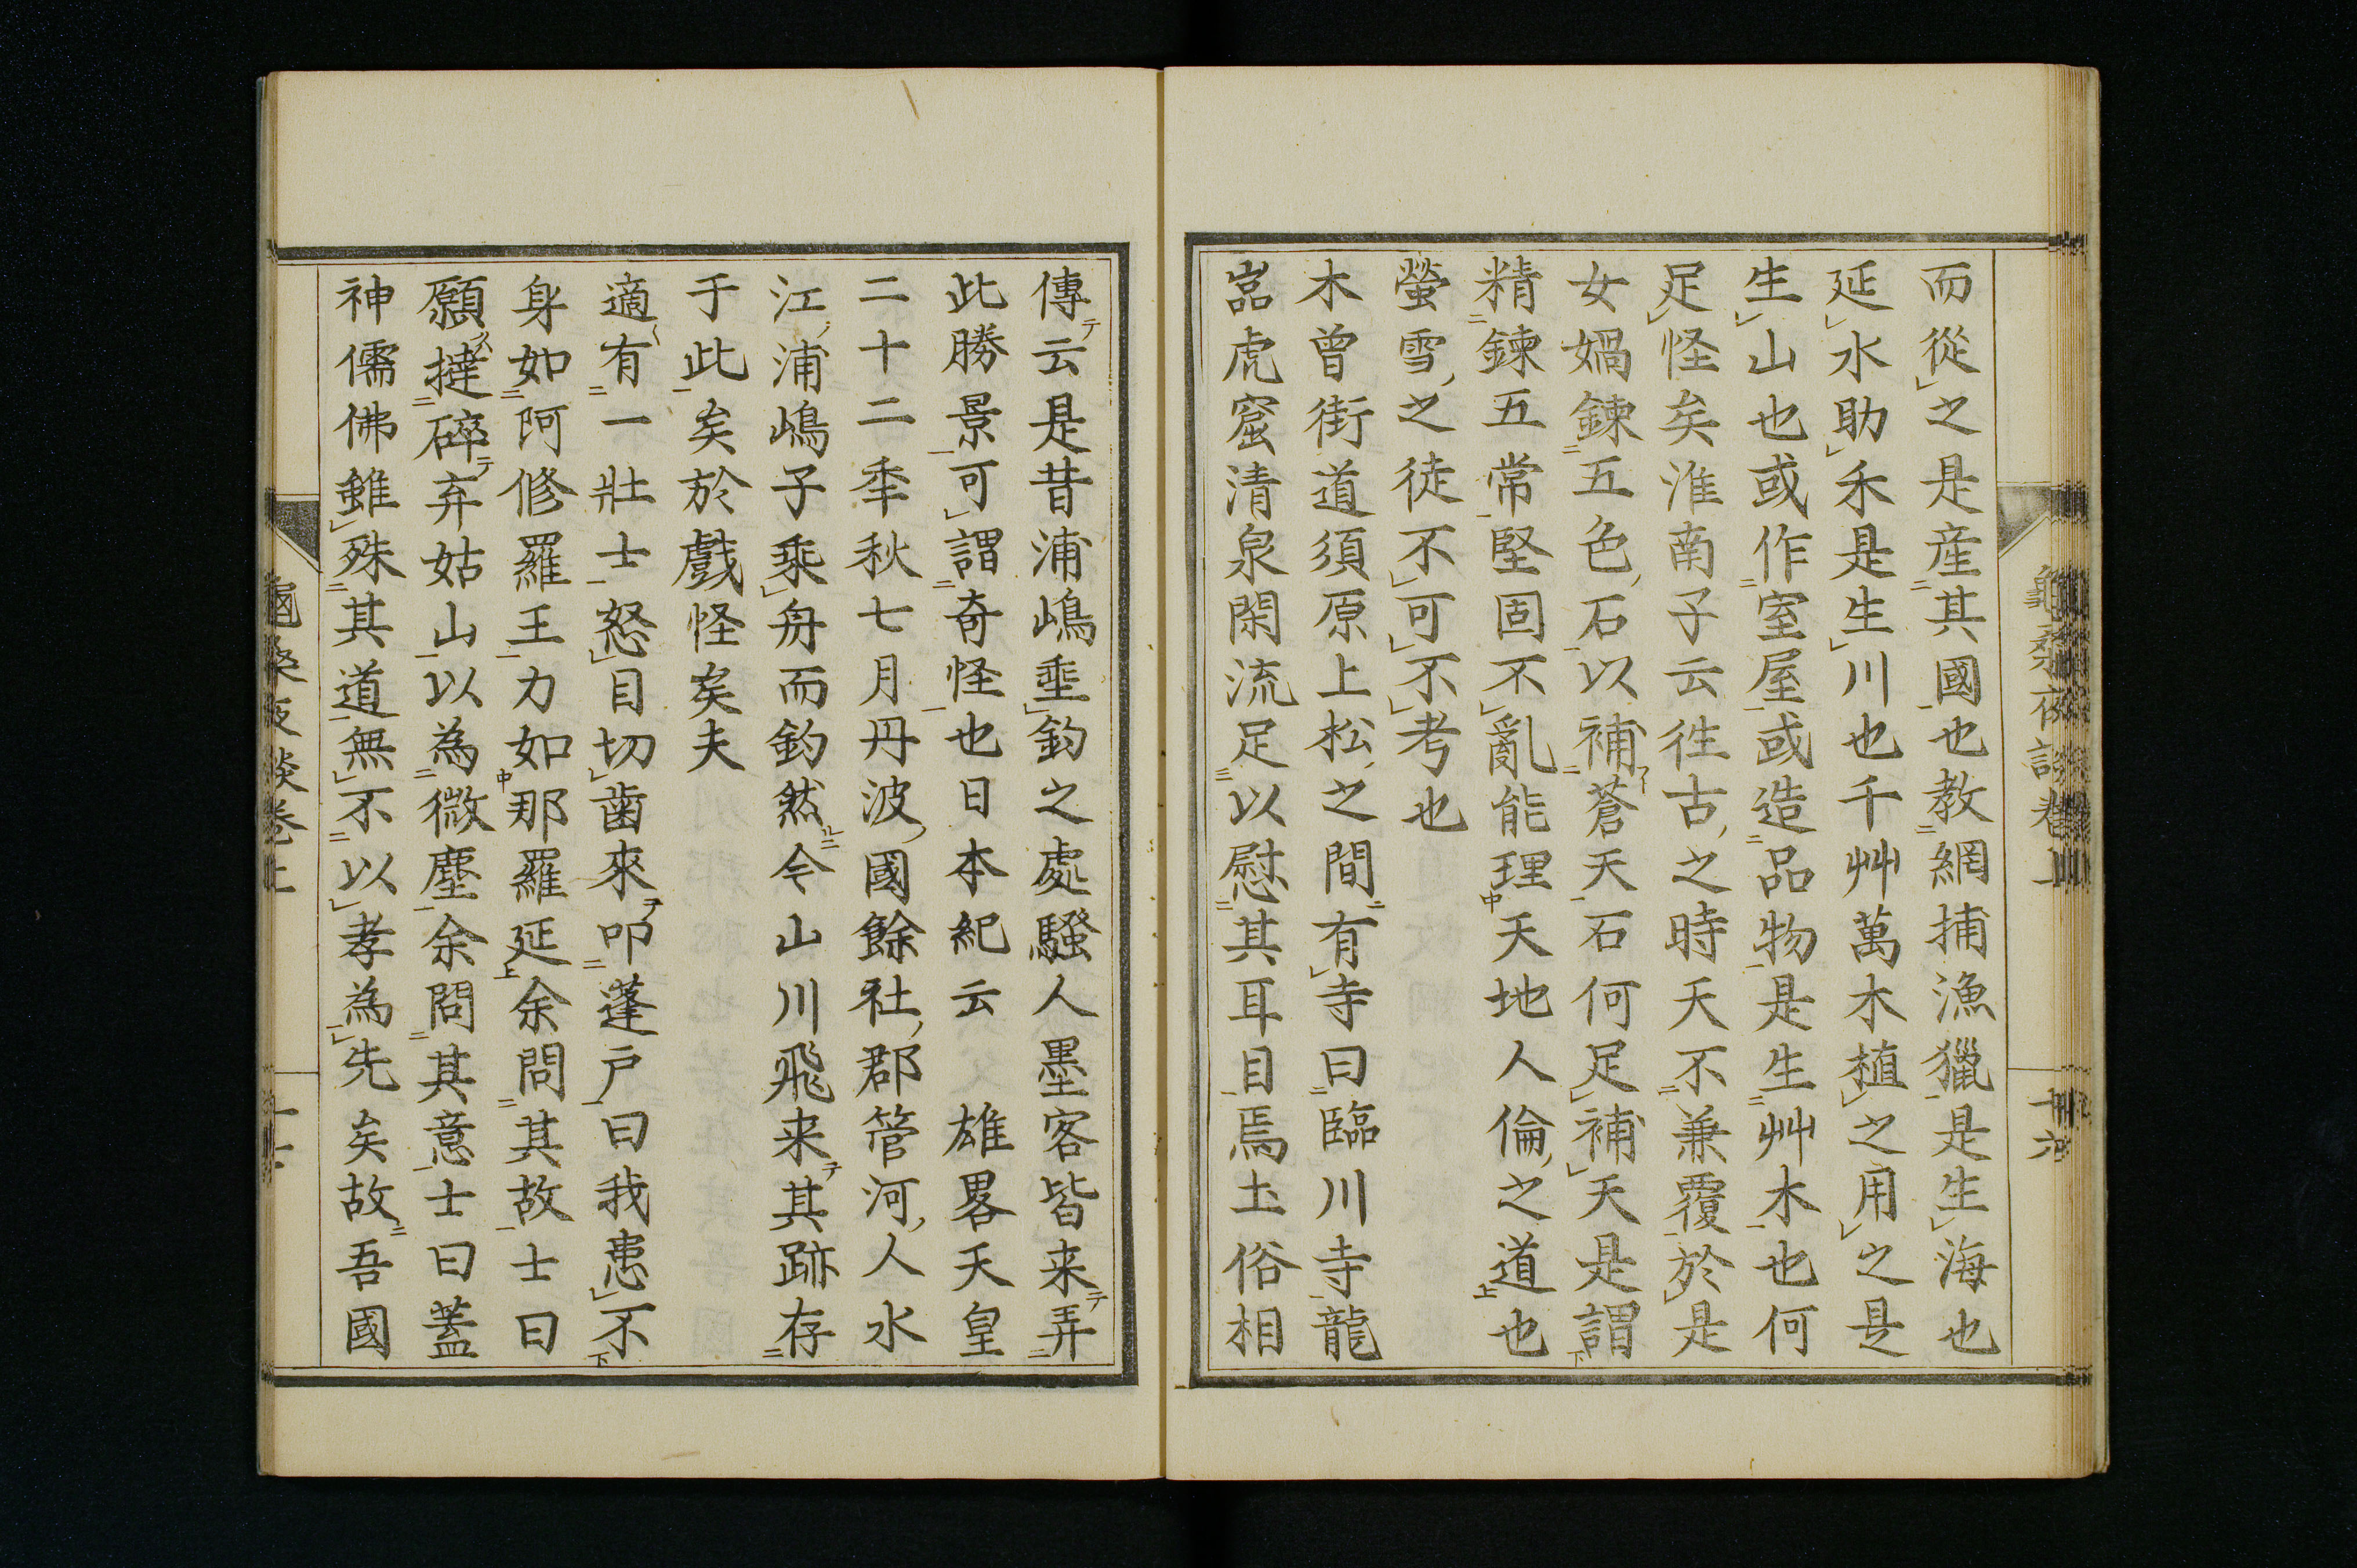 而從之是産其國也教網捕漁獵是生海也
延水助禾是生川也千艸萬木植之用之是
生山也或作室屋或造品物是生艸木也何
足怪矣淮南子云往古之時天不兼覆於是
女媧鍊五色石以補蒼天石何足補天是謂
精鍊五常堅固不亂能理天地人倫之道也
螢雪之徒不可不考也
木曾街道須原上松之間有寺曰臨川寺龍
嵓虎窟清泉閑流足以慰其耳目焉土俗相
傳云是昔浦嶋垂釣之處騷人墨客皆来弄
此勝景可謂奇怪也日本紀云 雄畧天皇
二十二秊秋七月丹波國餘社郡管河人水
江浦嶋子乘舟而釣然今山川飛来其跡存
于此矣於戲怪矣夫
適有一壯士怒目切齒來叩蓬戸曰我患不
身如阿修羅王力如那羅延余問其故士曰
願撻碎弃姑山以為微塵余問其意士曰蓋
神儒佛雖殊其道無不以孝為先矣故吾國